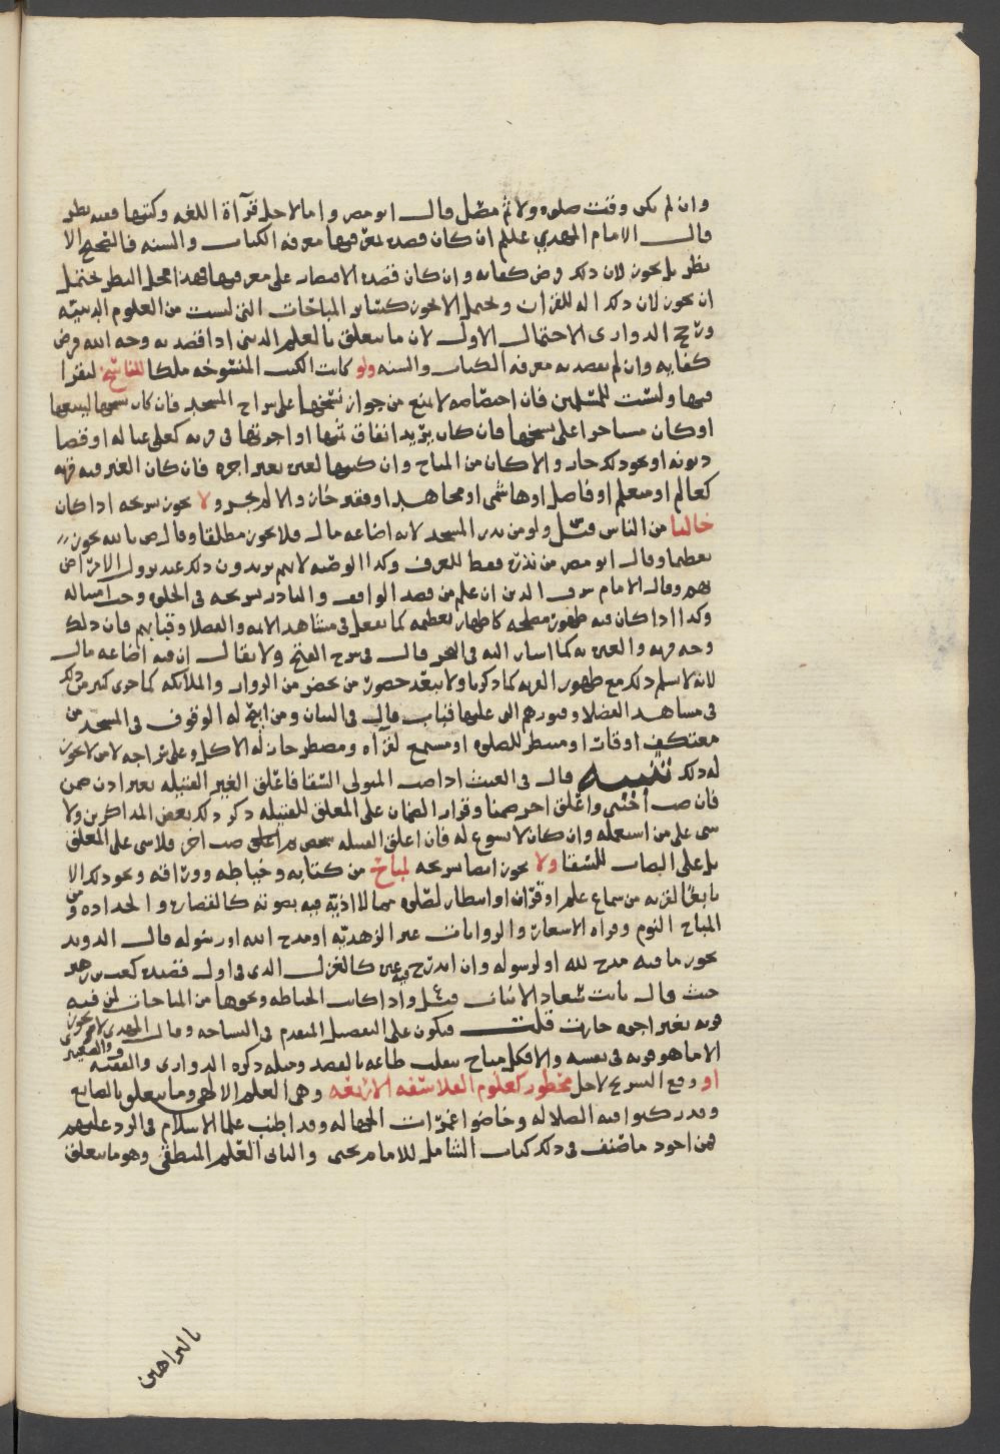 وان لم تكن وقت صلوه ولا ثم مصل قال ابو مضر واما لاجل قرآة اللغه وكتبها ففيه نظر
قال الامام المهدي علىلم ان كان قصده بمعرفتها معرفه الكتاب والسنه فالصحيح الا
نظر بل يجوز لان ذلك فرض كفايه وان كان قصده الاقتصار على معرفتها فهذا محل النظر يحتمل
ان يجوز لان ذلك اله للقرات ويحتمل الا يجوز كسائر المباحات التي ليست من العلوم الدينيه
ورجح الدواري الاحتمال الاول لان ما يتعلق بالعلم الديني اذا قصد به وجه الله فرض
كفايه وان لم يقصد به معرفه الكتاب والسنه ولو كانت الكتب المنسوخه ملكا للناسخ ليقرا
فيها وليست للمسلمين فان اختصاصه لا يمنع من جواز نسخها على سراج المسجد فان كان نسخها ليبيعها
او كان مستاجرا على نسخها فان كان يريد انفاق ثمنها او اجرتها في قربه كعلى عياله او قضا
ديونه او نحو ذلك جاز والا كان من المباح وان كتبها لغيره بغير اجره فان كان الغير فيه قربه
كعالم او متعلم او فاضل او هاشمي او مجاهد او فقير جاز والا لم يجز ولا يجوز تسريجه اذا كان
خاليا من الناس قيل ولو من نذر المسجد لانه اضاعه مال فلا يجوز مطلقا وقال ص بالله يجوز
تعظيما وقال ابو مضر من نذره فقط للعرف وكذا الوصيه لانهم يريدون ذلك عند نزول الامراض
بهم وقال الامام شرف الدين ان علم من قصد الواقف والناذر تسريجه في الخلوه وجب امتثاله
وكذا اذا كان فيه ظهور مصلحه كاظهار تعظيمه كما يفعل في مشاهد الائمه والفضلا وقبابهم فان ذلك
وجه قربه والعبره به كما اشار اليه في البحر قال في شرح الفتح ولا يقال ان فيه اضاعه مال
لانا لا نسلم ذلك مع ظهور القربه كما ذكرنا ولا يبعد حضور من يحضر من الزوار والملائكه كما جرى كثير من ذلك
في مشاهد الفضلا وقبورهم التي عليها قباب قال في البيان ومن ابيح له الوقوف في المسجد من
معتكف اوقات او منتظر للصلوه او مستمع لقرآه ومضطر جاز له الاكل وعلى سراجه لا من لا يجوز
له ذلك تنبيه قال في الغيث اذا صب المتولي السقا فاعلق الغير الفتيله بغير اذن ضمن
فان صب اجنبي واعلق اخر ضمنا وقرار الضمان على المعلق للفتيله ذكر ذلك بعض المذاكرين ولا
شي على من استعمله وان كان لا يسوغ له فان اعلق الفتيله شخص ثم صب اخر فلا شي على المعلق
بل على الصاب للسقا ولا يجوز ايضا تسريجه لمباح من كتابه وخياطه ووراقه ونحو ذلك الا
تابعا لقربه من سماع علم او قران او انتظار لصلوه مما لا اذيه فيه بصوته كالقصاره والحداده ومن
المباح النوم وقراه الاسعار والروايات غير الزهديه او مدح الله او رسوله قال الدويد
يجوز ما فيه مدح لله او لرسوله وان اندرج فيه غيره كالغزل الذي في اول قصيده كعب بن زهير
حيث قال بانت سعاد الابيات قيل واذا كانت الخياطه ونحوها من المباحات لمن فيه
قربه بغير اجره جازت قلت فيكون على التفصيل المتقدم في النساخه وقال المهدي لا يجوز
الا ما هو قربه في نفسه والا فكل مباح ينقلب طاعه بالقصد ومثله ذكره الدواري والفقيه
او وقع التسريج لاجل محظور كعلوم الفلاسفه الاربعه وهي العلم الالاهي وما يتعلق بالصانع
وقد ركبوا فيه الضلاله وخاضوا غمرات الجهاله وقد اطنب علما الاسلام في الرد عليهم
فمن اجود ما صنف في ذلك كتاب الشامل للامام يحيى والثاني العلم المنطقي وهو ما يتعلق
بالبراهين